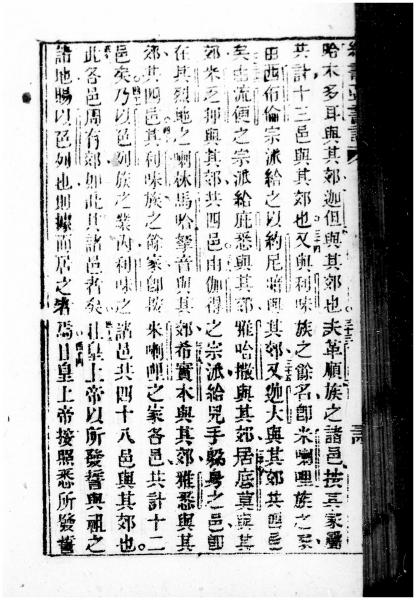 哈末多耳與其郊迦但與其郊也夫革順族之諸邑按其家屬
共計十三邑與其郊也又與利味族之餘名卽米喇哩族之家
由西布倫宗派給之以約尼暗與其郊又迦大與其郊共四邑
矣由流便之宗派給庇悉與其郊雅哈撒與其郊居底莫與其
郊米乏押與其郊共四邑由伽得之宗派給兇手躲身之邑卽
在其烈地之喇末馬哈拏音與其郊希實本與其郊雅悉與其
郊共四邑其利味族之餘家卽按米喇哩之家各邑共計十二
邑矣乃以色列族之業內利味之諸邑共四十八邑與其郊也
此各邑周有郊如此其諸邑者矣且皇上帝以所發誓與祖之
諸地賜以色列也則據而居之者焉且皇上帝按照悉所發誓